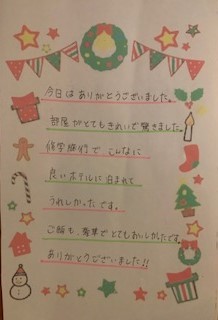 今日はありがとうございました。
部屋がとてもきれいで驚きました。
修学旅行で こんなに
良いホテルに泊まれて
うれしかったです。
ご飯も、豪華でとてもおいしかったです。
ありがとうございました!!